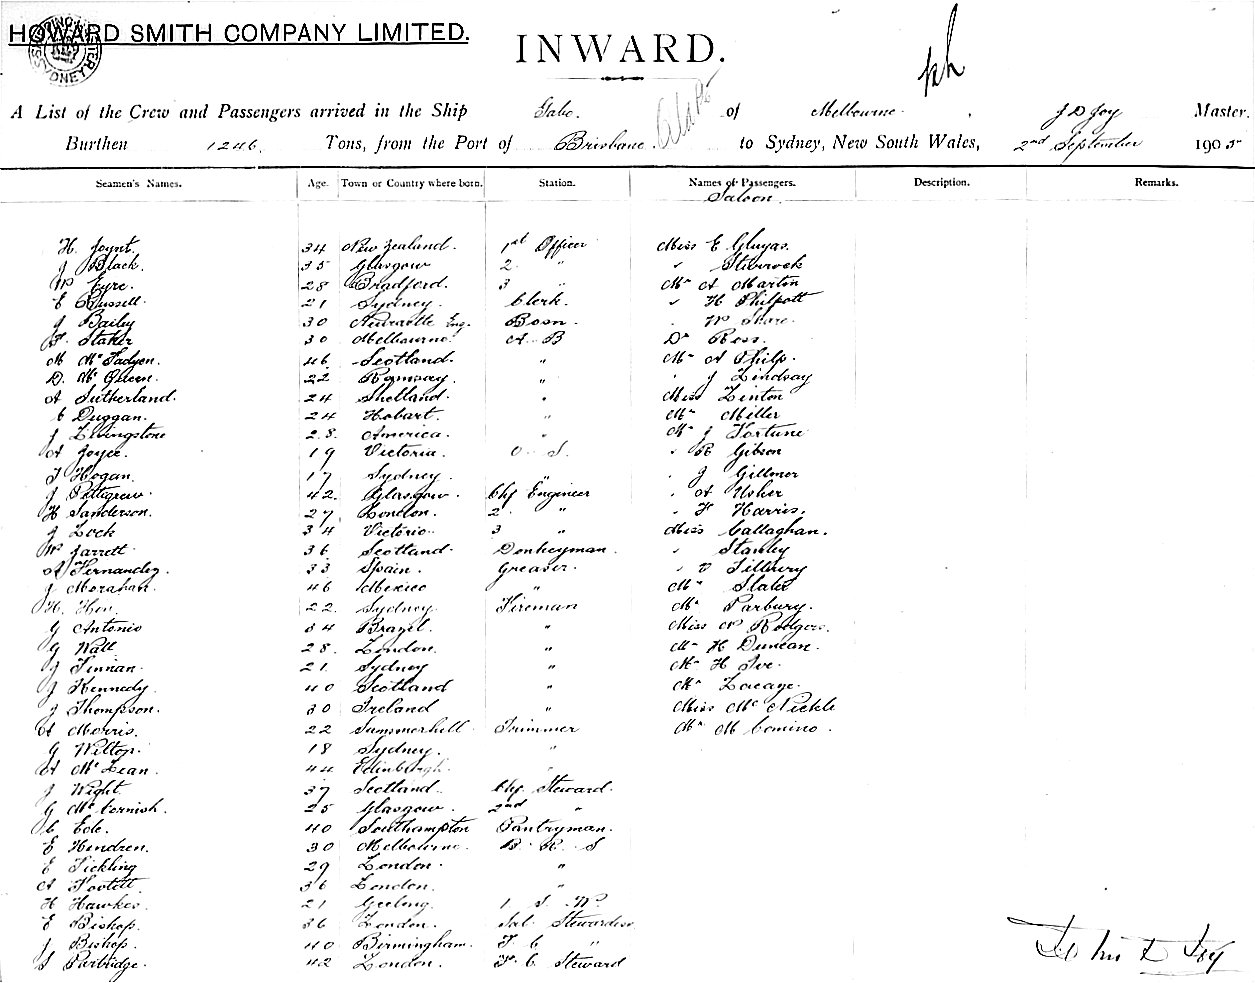 HOWARD SMITH COMPANY LIMITED.
INWARD.
A List of the Crew and Passengers arrived in the Ship Gabo. of Melbourne. J D Joy Master.
Burthen 1246. Tons, from the Port of Brisbane. to Sydney, New South Wales, 2nd September 1905
Seamen's Names. Age. Town or Country where born. Station. Names of Passengers. Description. Remarks.
Saloon
H. Joynt. 34 New Zealand. 1st Officer Miss E Gluyas.
J Black. 35 Glasgow 2 " " Sturrock
W Eyre. 28 Bradford. 3 " Mr A Martin
E Russell. 21 Sydney. Clerk. " H Philpott
J Bailey 30 Newcastle Eng. Bosn. " W Shore.
Staker 30 Melbourne. A B Dr Ross.
M McFadyen. 46 Scotland. " Mr A Philp.
D. McQueen. 22 Ramsay. " " J Lindsay
A Sutherland. 24 Shetland. " Miss Linton
C Duggan. 24 Hobart. " Mr Miller
J Livingstone 28. America. " Mr J Fortune
A Joyce. 19 Victoria. O. S. " R Gibson
T Hogan. 17 Sydney. " " J Gillmer
J Pettigrew. 42. Glasgow. Chf Engineer " A Usher
H Sanderson. 27 London. 2 " " F Harris.
J Lock 34 Victoria. 3 " Miss Callaghan.
W Jarrett. 36 Scotland. Donkeyman. " Stanley
A Fernandez. 33 Spain. Greaser. " V Tilbury
J Morahan. 46 Mexico " Mr Slater
H. 22. Sydney. Fireman Mr Parbury.
G Antonio 34 Brazil. " Miss N Rodgers.
G Watt 28. London. " Mr H Duncan.
J Finnan. 21 Sydney " Mr H Ive.
J Kennedy. 40 Scotland " Mr
J Thompson. 30 Ireland " Miss McNickle
A Morris. 22 Summerhill Trimmer Mr M Comino.
G Wilton. 18 Sydney. "
A McLean. 44 Edinburgh. "
J Wight. 37 Scotland. Chf Steward.
G McCornish. 25 Glasgow. 2nd "
C Ede. 40 Southampton Pantryman.
E Hendren. 30 Melbourne. B. R. S
E Tickling 29 London. "
A 36 London. "
H Hawkes. 21 Geelong. 1 S. W.
E Bishop. 36 London. Sal. Stewardess
J Bishop. 40 Birmingham. F C "
S Partridge. 42 London. F. C Steward
John D Joy